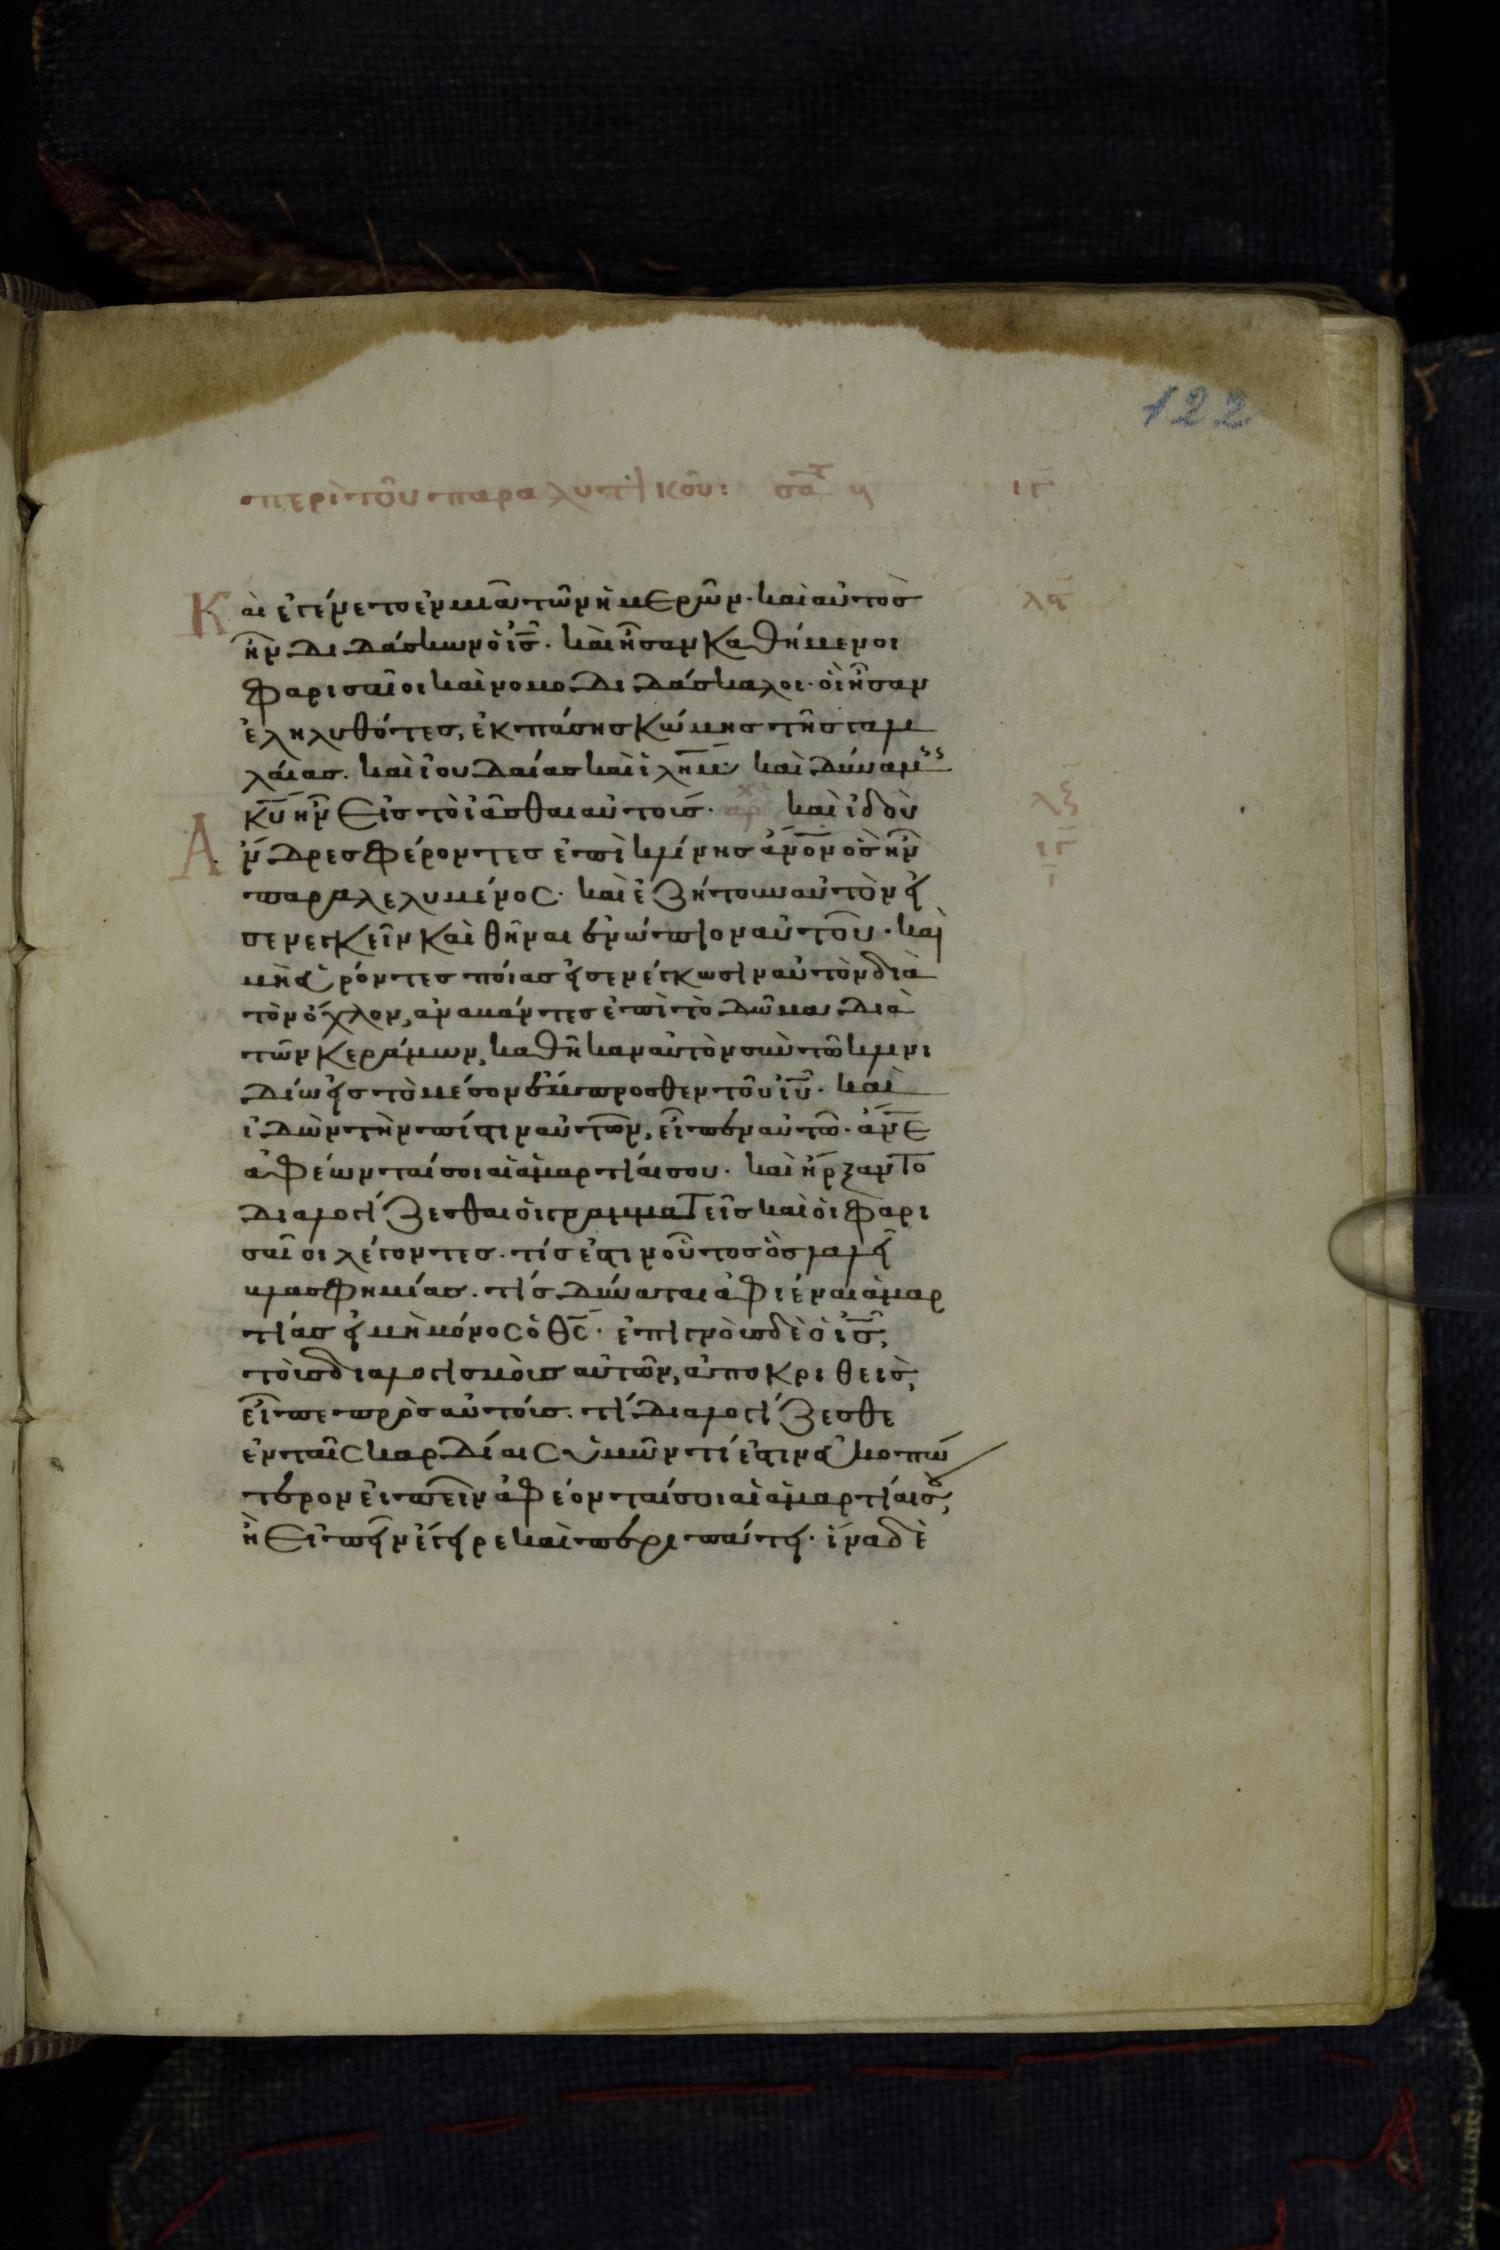 122
περὶ τοῦ παραλυτικοῦ: ιγ
Καὶ ἐγένετο ἐν μιᾶ τῶν ἡμερῶν· καὶ αὐτὸσ
ἦν διδάσκων ὁ ἰς· καὶ ἦσαν καθήμενοι
φαρισαῖοι καὶ νομοδιδάσκαλοι· οἳ ἦσαν
ἐληλυθότεσ, ἐκ πάσησ κώμησ τῆσ γαλι
λαίασ. καὶ ἰουδαίασ καὶ ἰλημ· καὶ δύναμισ
κυ ἦν εἰσ τὸ ἰᾶσθαι αὐτούσ· ἀρχ καὶ ἰδοὺ
Ἄνδρεσ φέροντεσ ἐπὶ κλίνησ ἄνον ὃσ ἦν
παραλελυμένος· καὶ ἐζήτουν αὐτὸν εἰ
σενεγκεῖν καὶ θῆναι ἐνώπιον αὐτοῦ· καὶ
μὴ εὑρόντεσ ποίασ εἰσενέγκωσιν αὐτὸν διὰ
τὸν ὄχλον, ἀναβάντεσ ἐπὶ τὸ δῶμα, διὰ
τῶν κεράμων, καθῆκαν αὐτὸν σὺν τῶ κλινι
δίω εἰσ τὸ μέσον ἔμπροσθεν τοῦ ἰυ· καὶ
ἰδὼν τὴν πίστιν αὐτῶν, εἶπεν αὐτῶ· ἄνε
ἀφέωνταί σοι αἱ ἁμαρτίαι σου· καὶ ἤρξαντο
διαλογίζεσθαι οἱ γραμματεῖσ καὶ οἱ φαρι
σαῖοι λέγοντεσ· τίσ ἐστιν οὗτοσ ὃσ λαλεῖ
βλασφημίασ. τίσ δύναται ἀφιέναι ἁμαρ
τίασ εἰ μὴ μόνος ὁ θς· ἐπιγνοὺσ δὲ ὁ ἰς,
τοὺσ διαλογισμοὺσ αὐτῶν, ἀποκριθεὶσ,
εἶπε πρὸσ αὐτούσ. τί διαλογίζεσθε
ἐν ταῖς καρδίαις ὑμῶν τί ἐστιν εὐκοπώ
τερον εἰπεῖν ἀφέονταί σοι αἱ ἁμαρτίαι σου,
ἢ εἰπεῖν ἔγειρε καὶ περιπάτει· ἵνα δὲ